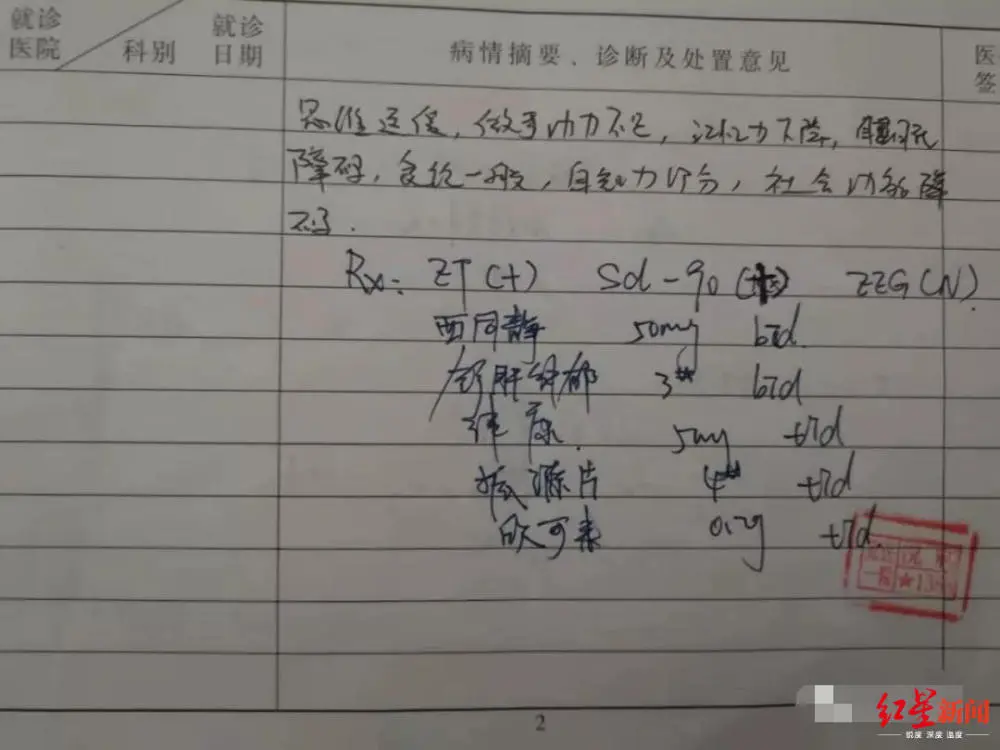 就诊医院 科别 就诊日期 病情摘要、诊断及处置意见 医 签
思维迟缓，做事动力不足，记忆力下降，睡眠
障碍，食纳一般，自知力部分，社会功能
Rx: ZT(+) Scl-90(+) ZZG(N)
50mg bid
舒肝解郁 3# bid
5mg tid
片 4# tid
欧可来 0.2g tid.
2
红星新闻
锐度 深度 温度